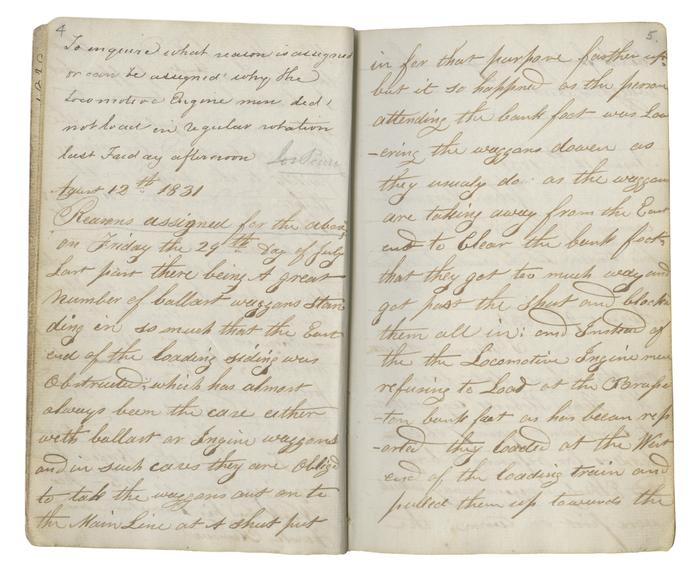 4
To enquire what reason is assigned
or can be assigned why the
Locomotive Engine men did
not load in regular rotation
last Friday afternoon
Agust 12th 1831
Reasons assigned for the above
on Friday the 29th Day of July
Last past there being A great
Number of ballast waggons stan
ding in so much that the East
end of the loading siding was
Obstructed, which has almost
always been the case either
with ballast or Ingine waggons
and in such cases they are Oblig'd
to take the waggons out on to
the Main Line at A shut put
5.
in for that purpose farther up.
but it so happned as the person
attending the bank foot was Low
-ering the waggons dowen as
they usualy do as the waggons
are taking away from the East
end to Clear the bank foot,
that they got too much way and
got past the shut and blockd
them all in: and Instead of
the the Locomotive Ingine men
refusing to Load at the Brusle
-ton bank foot as has beean rep
-orted they loaded at the West
end of the loading train and
pulled them up towards the